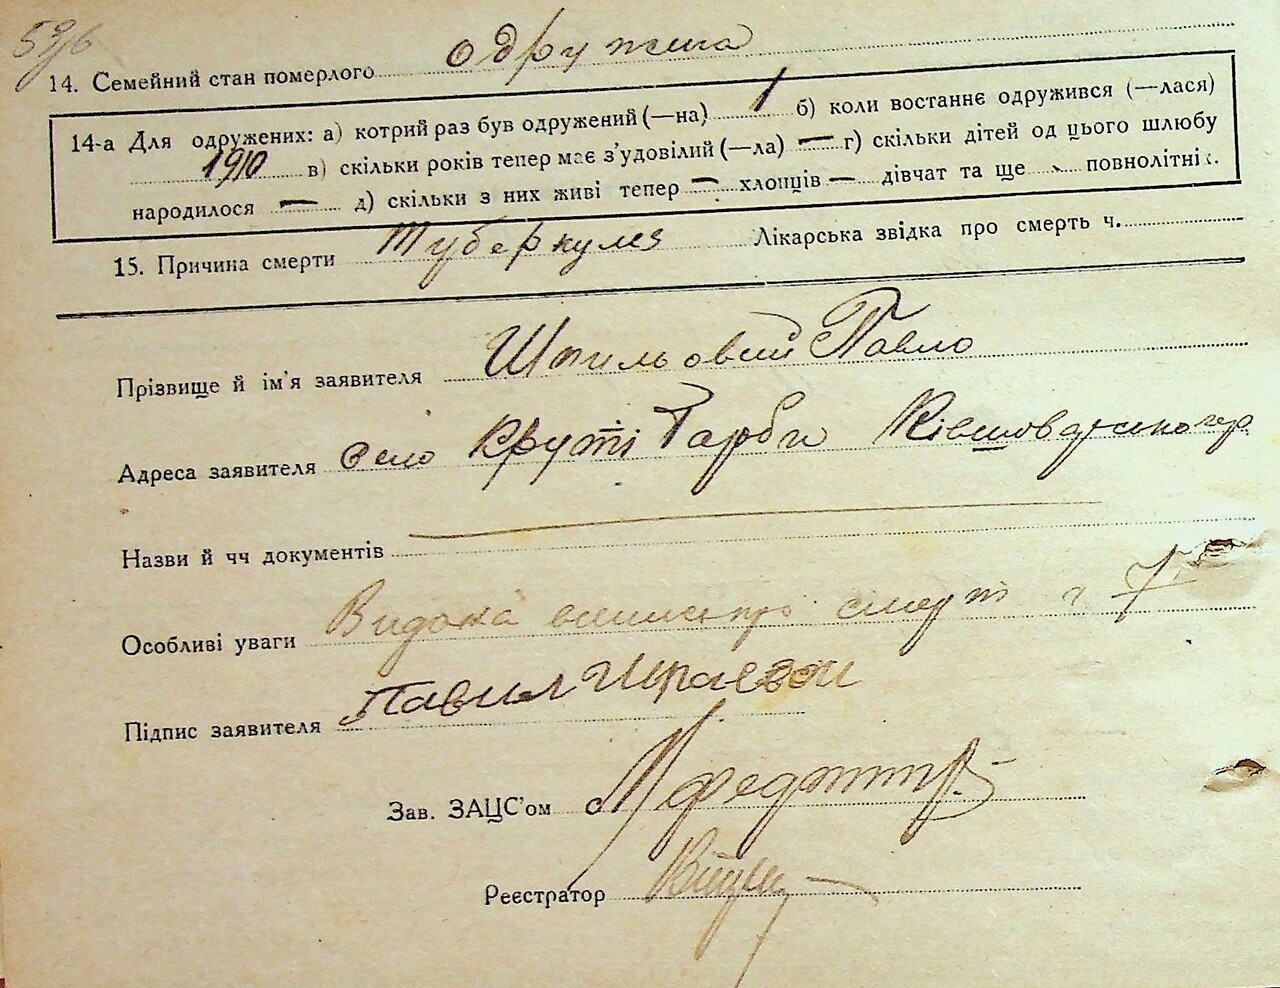 53/6
14. Семейний стан померлого одружена
14-а Для одружених: а) котрий раз був одружений (—на) 1 б) коли востаннє одружився (—лася)
1910 в) скільки років тепер має з'удовілий (—ла) — г) скільки дітей од цього шлюбу
народилося — д) скільки з них живі тепер — хлопців — дівчат та ще повнолітніх.
15. Причина смерти туберкульоз Лікарська звідка про смерть ч.
Прізвище й ім'я заявителя Шпильовий Павло
Адреса заявителя село Круті Горби Ківшоватського р.
Назви й чч документів
Особливі уваги Видана виписьпро смерт 7
Підпис заявителя Павил
Зав. ЗАЦС'ом
Реєстратор